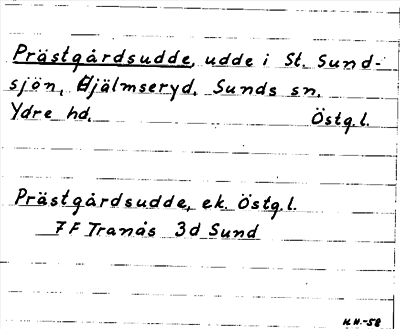 Prästgårdsudde, udde i St. Sund-
sjön, Hjälmseryd. Sunds sn.
Ydre hd. Östg.l.
Prästgårdsudde, ek. Östg.l.
7F Tranås 3d Sund
H.H.-58